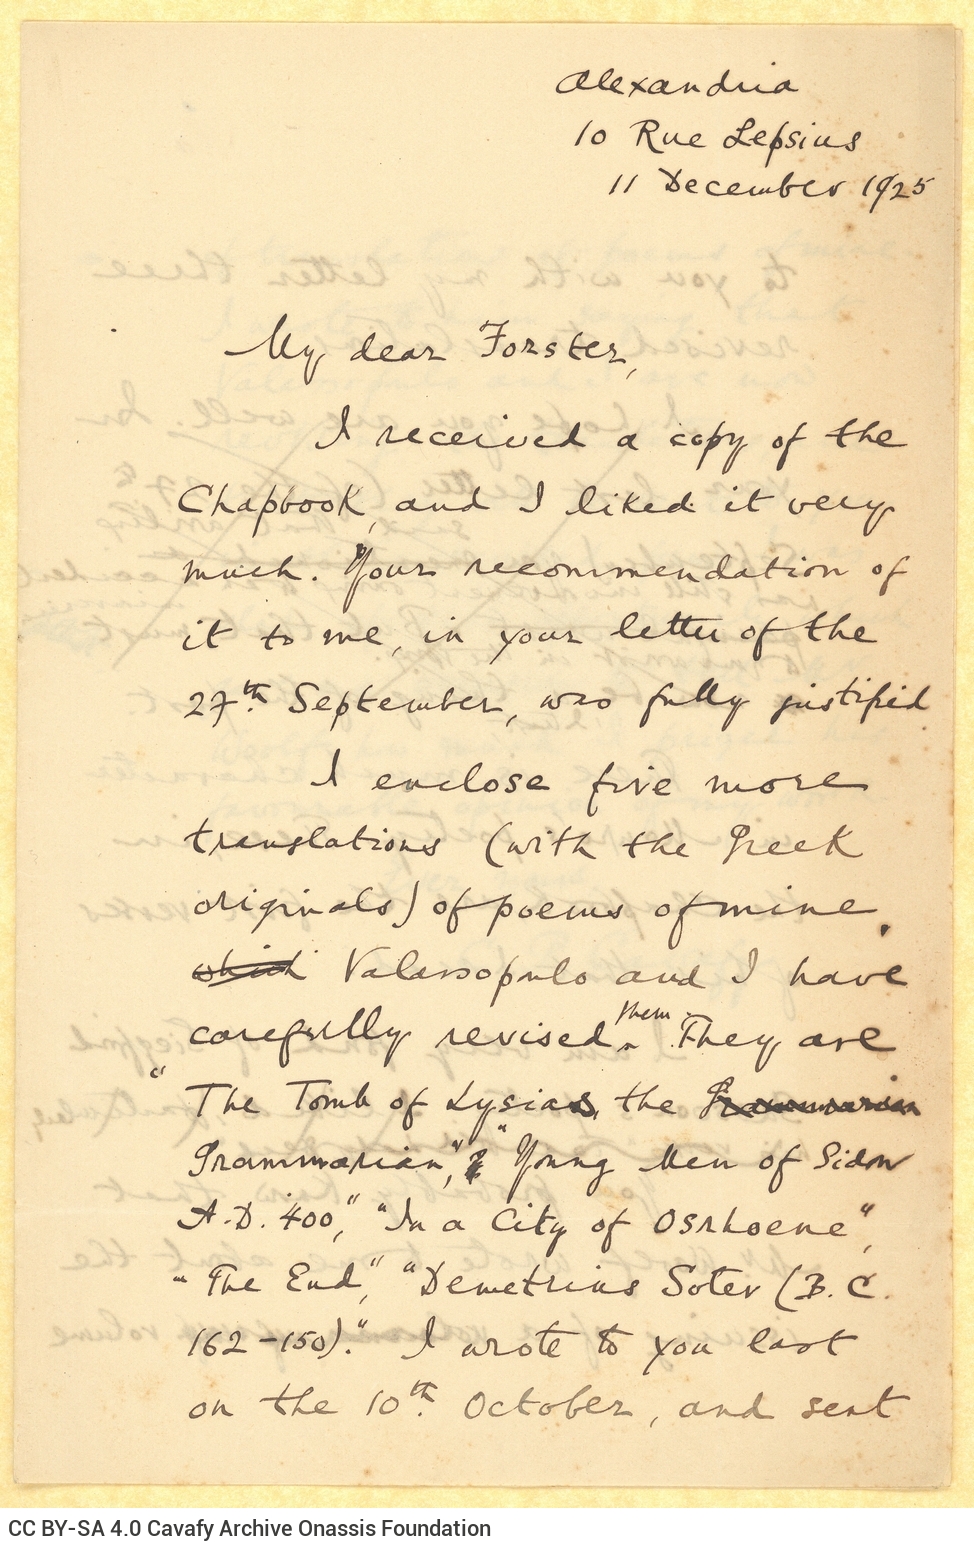 Alexandria
10 Rue Lepsius
11 December 1925
My dear Forster,
I received a copy of the
Chapbook, and I liked it very
much. Your recommendation of
it to me, in your letter of the
27th. September, was fully justified
I enclose five more
translations (with the Greek
originals) of poems of mine.
which Valassopulo and I have
carefully revised them. They are
"The Tomb of Lysias, the Grammarian
Grammarian", "Young Men of Sidon
A.D. 400", "In a City of Osrhoene",
"The End", "Demetrius Soter (B.C.
162-150)." I wrote to you last
on the 10th. October, and sent
CC BY-SA 4.0 Cavafy Archive Onassis Foundation